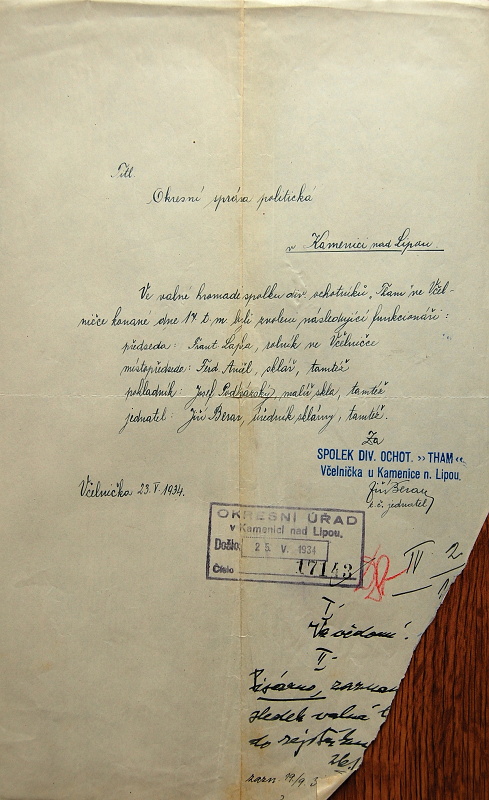 Titl.
Okresní správa politická
v Kamenici nad Lipou.
Ve valné hromadě spolku div. ochotníků „Tham" ve Včel-
ničce konané dne 17 t. m. byli zvoleni následující funkcionáři:
předseda: Frant. Lapka, rolník ve Včelničce
místopředseda: Ferd. Anděl, sklář, tamtéž
pokladník: Josef Podhárský, malíř skla, tamtéž
jednatel: Jiří Beran, úředník sklárny, tamtéž.
Za
SPOLEK DIV. OCHOT. „THAM"
Včelnička u Kamenice n. Lipou.
Včelnička 23. V. 1934.
Jiří Beran
t. č. jednatel
OKRESNÍ ÚŘAD
v Kamenici nad Lipou.
Došlo: 25. V. 1934
Číslo 17143
IV 2
I.
Ve vědomí.
II.
Písárno, zaznam
sledek valné
do rejstříku